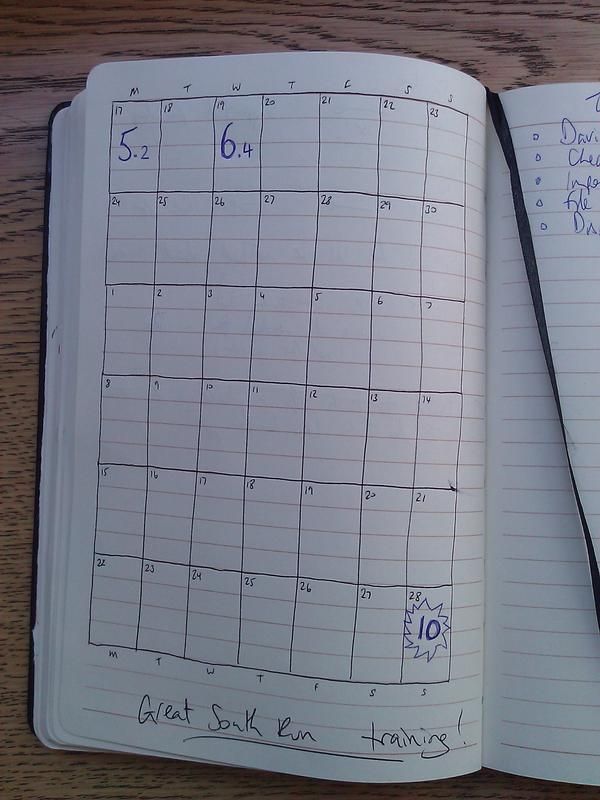 M T W T F S S
17 18 19 20 21 22 23
5.2 6.4
24 25 26 27 28 29 30
1 2 3 4 5 6 7
8 9 10 11 12 13 14
15 16 17 18 19 20 21
22 23 24 25 26 27 28
10
M T W T F S S
Great South Run training!
T
Davi
Chec
Impo
File